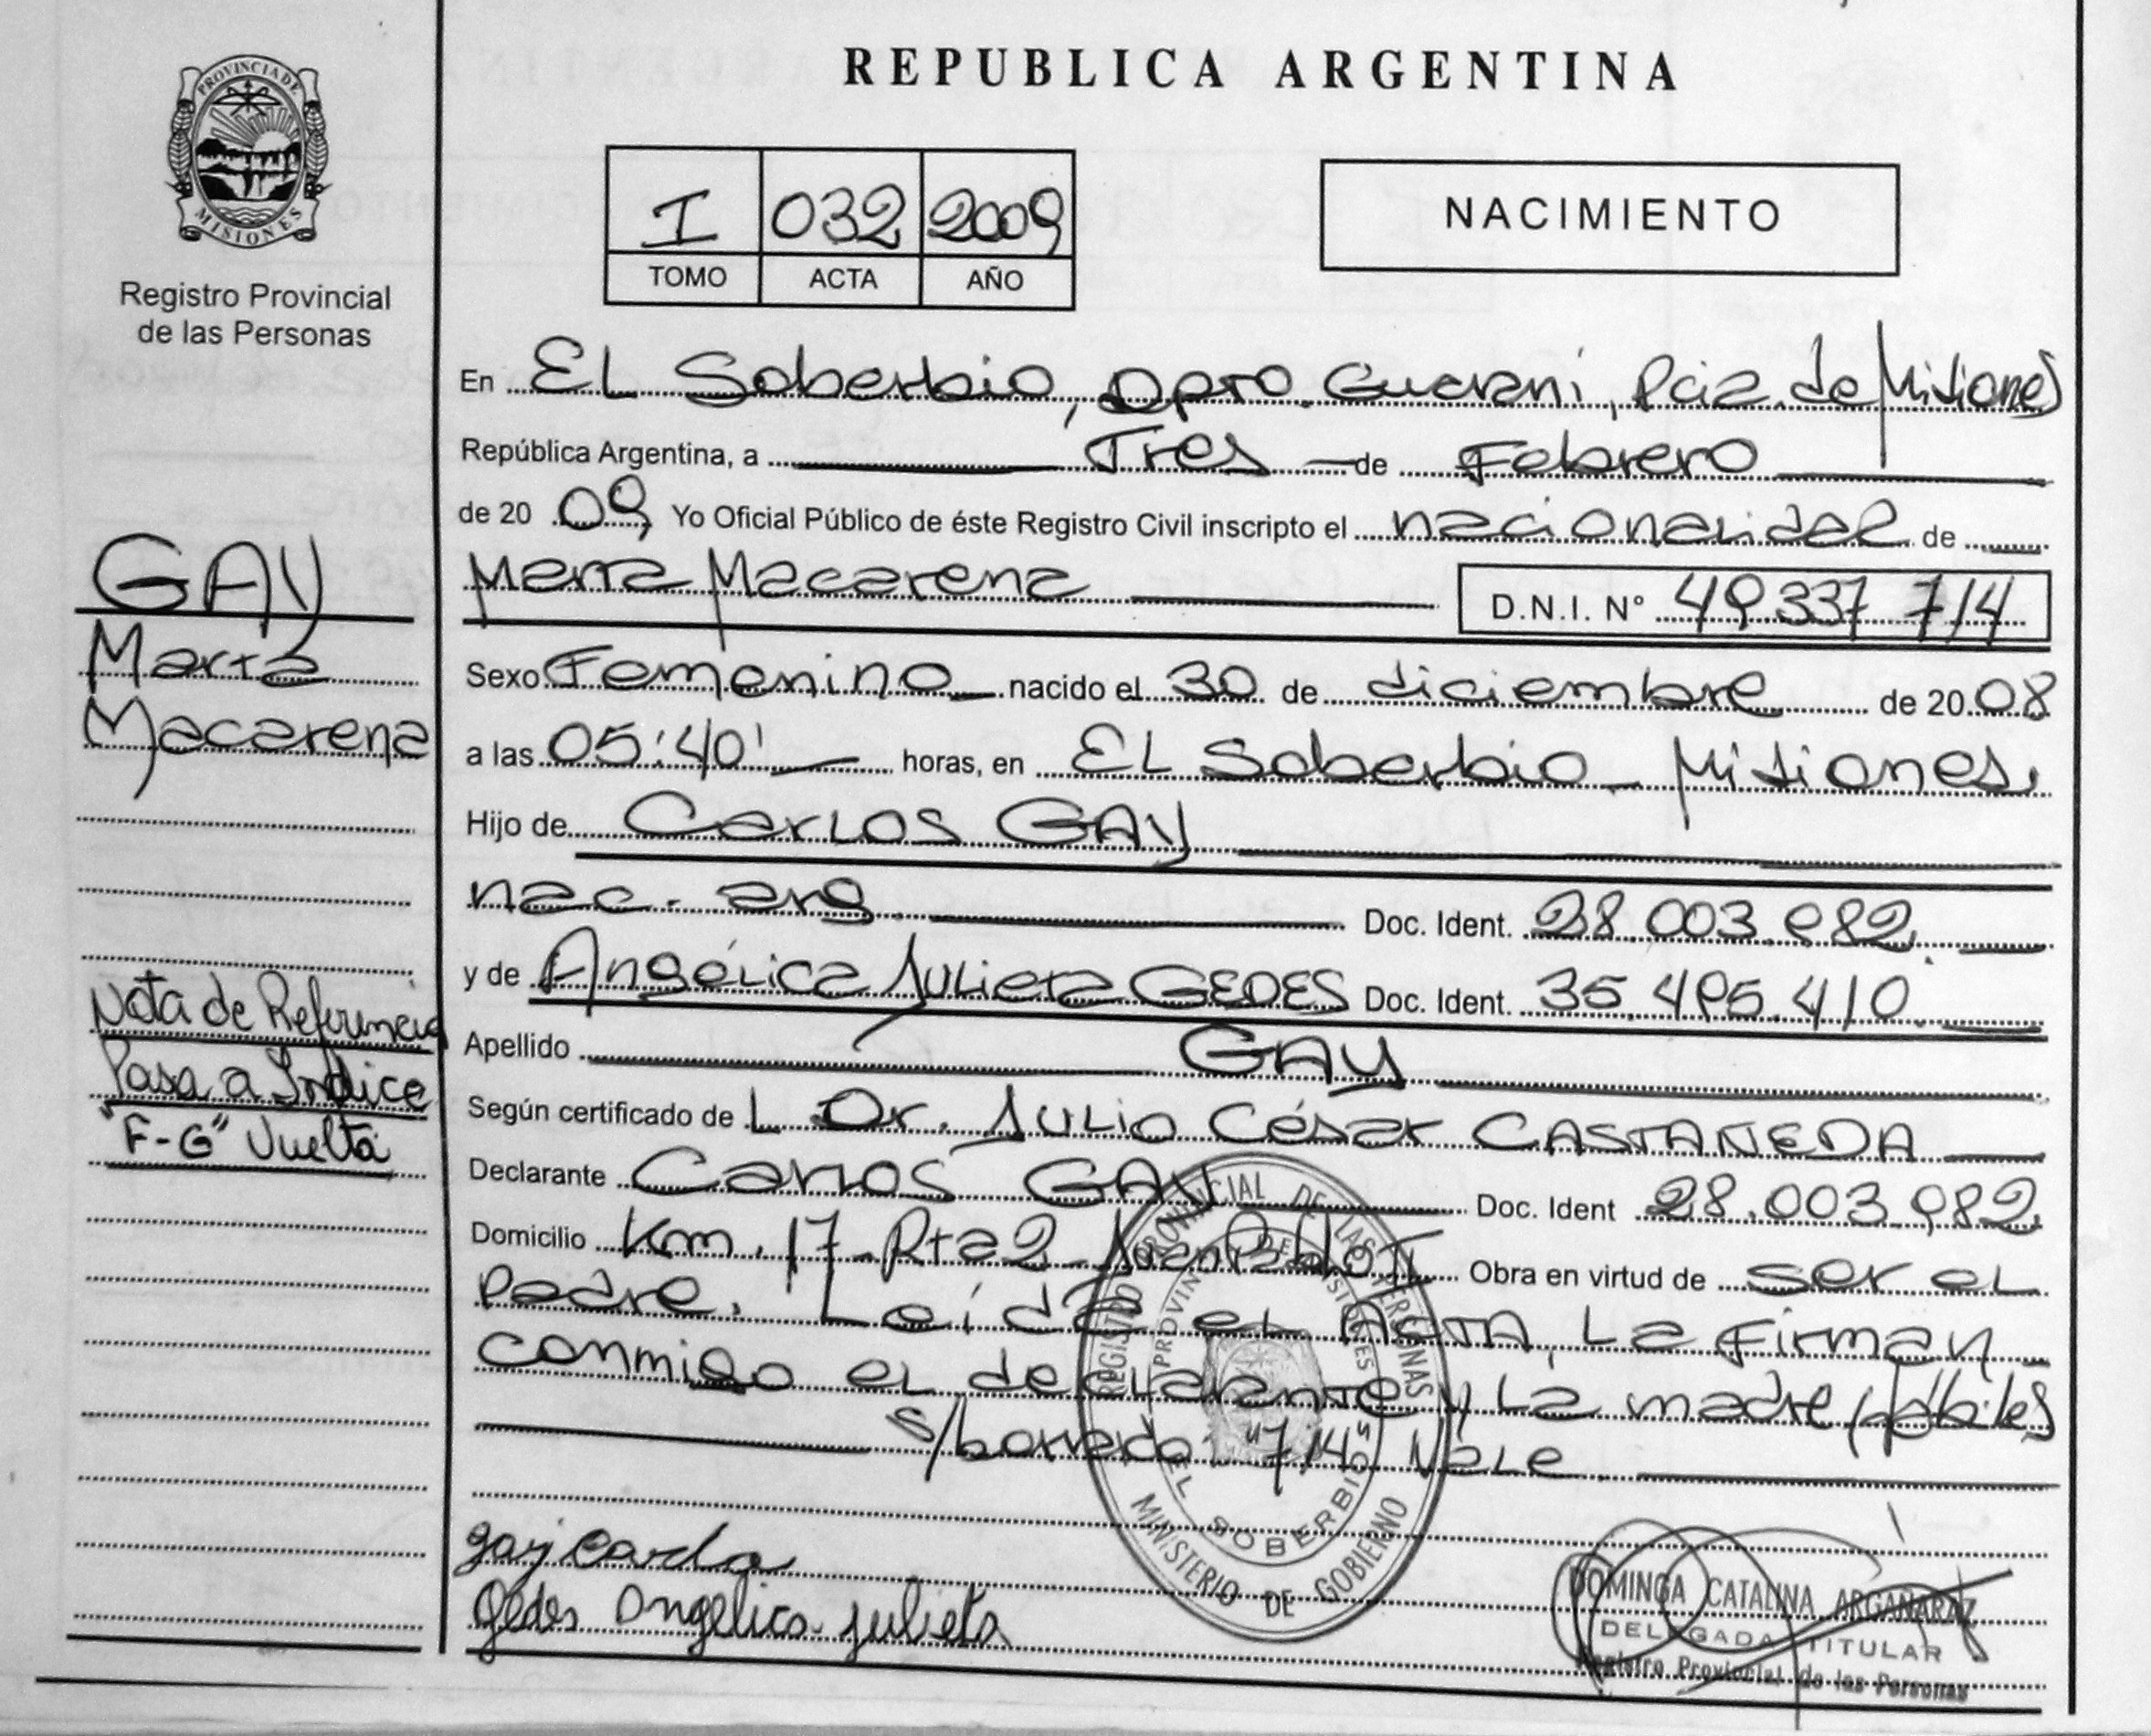 PROVINCIA DE
MISIONES
Registro Provincial
de las Personas
GAY
Marta
Macarena
Nota de Referencia
Pasa a Indice
"F-G" Vuelta
REPUBLICA ARGENTINA
I 032 2009
TOMO ACTA AÑO
NACIMIENTO
En EL Soberbio, Dpto. Guarani, Pcia. de Misiones
República Argentina, a Tres de Febrero
de 20 09 Yo Oficial Público de éste Registro Civil inscripto el nacionalidad de
Marta Macarena D.N.I. Nº 49.337 714
Sexo Femenino nacido el 30 de diciembre de 20 08
a las 05:40' horas, en EL Soberbio - Misiones.
Hijo de Carlos GAY
nac. arg. Doc. Ident. 28.003.982.
y de Angélica Julieta GEDES Doc. Ident. 35.495.410
Apellido GAY
Según certificado de L Dr. Julio César CASTAÑEDA
Declarante Carlos GAY Doc. Ident 28.003.982
Domicilio Km. 17 - Rta 2 Juan Pablo II Obra en virtud de ser el
Padre. Leída el ACTA, La Firman
conmigo el declarante y La madre, hábiles
s/borrado: "714" Vale
gay carlo
Gedes Angelica Julieta
REGISTRO PROVINCIAL DE LAS PERSONAS
PROVINCIA DE MISIONES
EL SOBERBIO
MINISTERIO DE GOBIERNO
DOMINGA CATALINA ARGAÑARAZ
DELEGADA TITULAR
Registro Provincial de las Personas